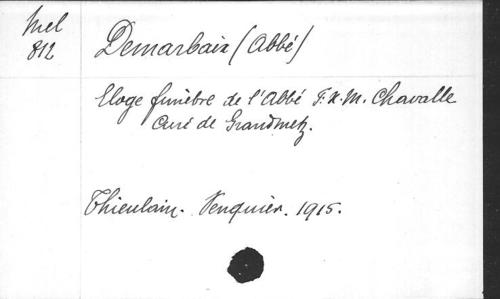 Mel
812
Demarbaix (Abbé)
Eloge funèbre de l'Abbé F. X. M. Chavalle
Curé de Grandmetz.
Thieulain. Venquier. 1915.